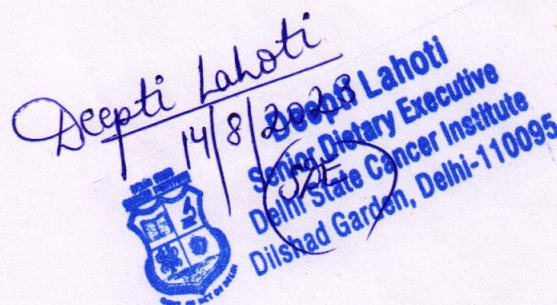 Deepti Lahoti
14/8/2023
Deepti Lahoti
Senior Dietary Executive
Delhi State Cancer Institute
Dilshad Garden, Delhi-110095